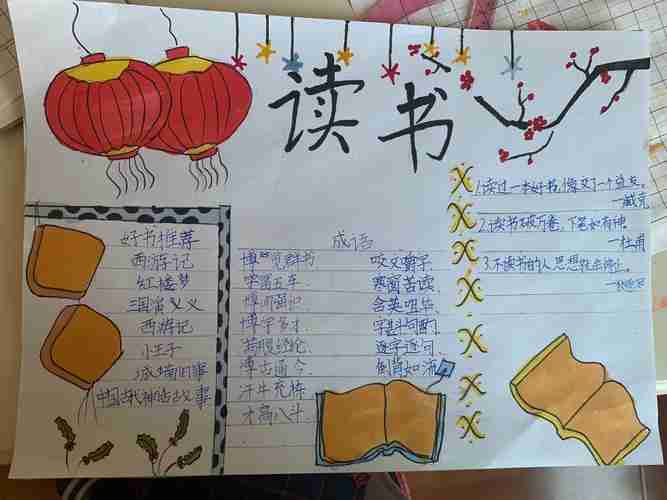 读书
好书推荐
西游记
红楼梦
三国演义
西游记
小王子
城南旧事
中国古代神话故事
成语
博览群书 咬文嚼字
学富五车 寒窗苦读
博闻强识 含英咀华
博学多才 字斟句酌
满腹经纶 逐字逐句
博古通今 倒背如流
汗牛充栋
才高八斗
1.读过一本好书,像交了一个益友。
—臧克
2.读书破万卷,下笔如有神
—杜甫
3.不读书的人,思想就会停止。